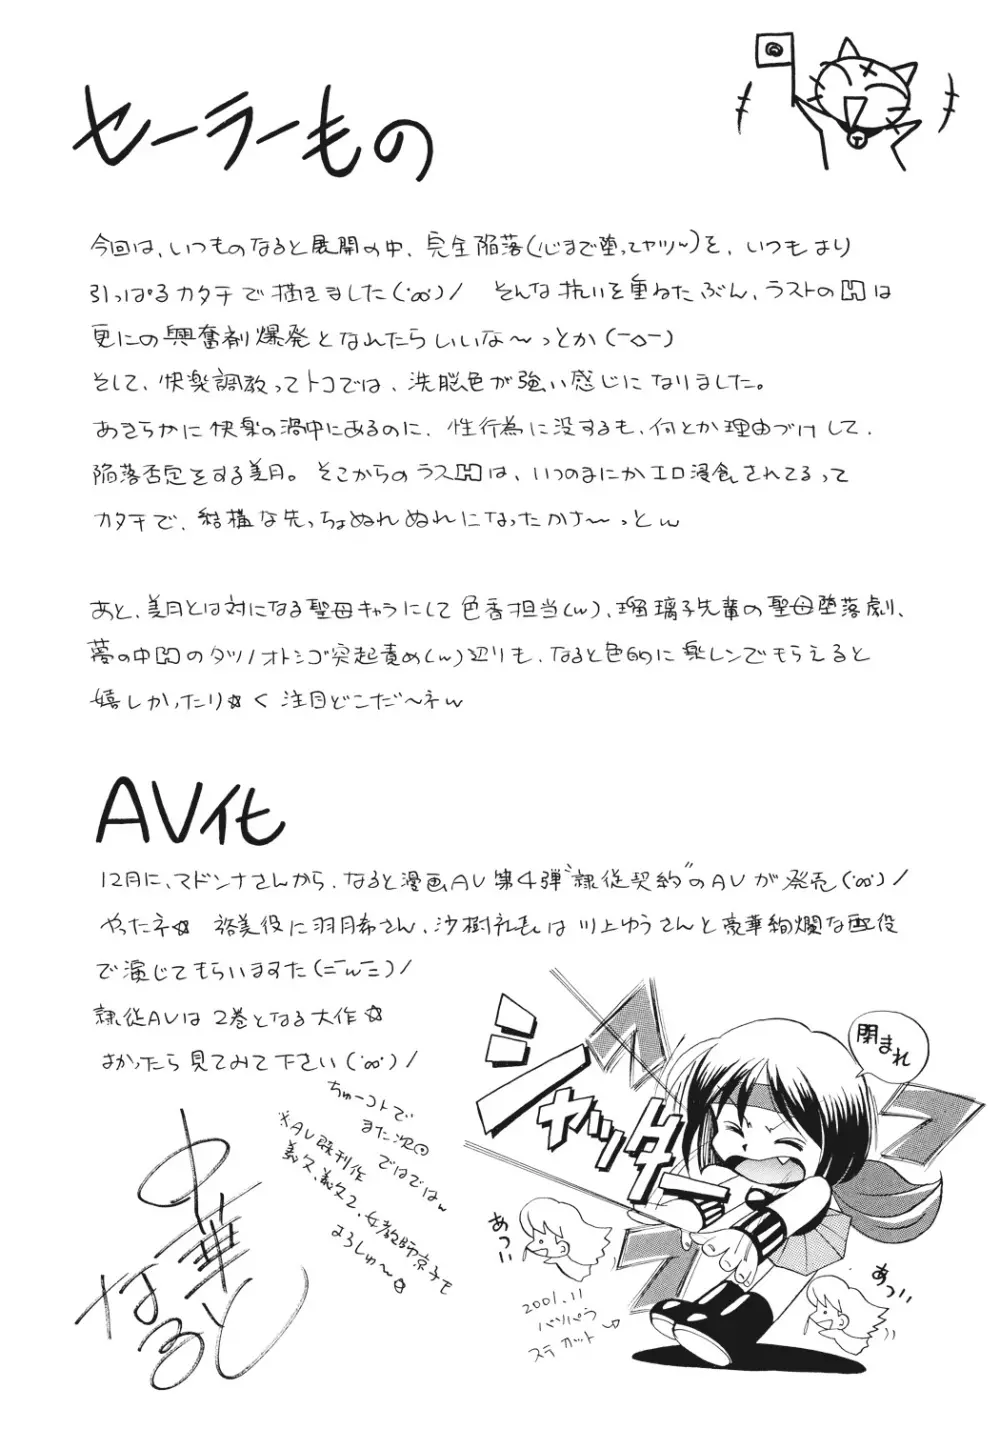 セーラーもの
今回は、いつものなると展開の中、完全陥落(心まで堕ってヤツ〜)を、いつもより
引っぱるカタチで描きました(˙ꝏ˙)ノ そんな抗いを重ねたぶん、ラストのHは
更にの興奮剤爆発となれたらいいな〜っとか(ー◇ー)
そして、快楽調教ってトコでは、洗脳色が強い感じになりました。
あきらかに快楽の渦中にあるのに、性行為に没するも、何とか理由づけして、
陥落否定をする美月。そこからのラスHは、いつのまにかエロ浸食されてるって
カタチで、結構な先っちょぬれぬれになったかさ〜っとw
あと、美月とは対になる聖母キャラにして色香担当(w)、瑠璃子先輩の聖母堕落劇、
夢の中間のタツノオトシゴ突起責め(w)辺りも、なると色的に楽しンでもらえると
嬉しかったり☆く 注目どこだ〜ネw
AV化
12月に、マドンナさんから、なると漫画AV第4弾"隷従契約"のAVが発売(˙ꝏ˙)ノ
やったネ☆ 裕美役に羽月希さん、沙樹礼役は川上ゆうさんと豪華絢爛な配役
で演じてもらいますた(ニ¯w¯ニ)ノ
隷従AVは2巻となる大作☆
よかったら見てみて下さい(˙ꝏ˙)ノ
ちゅーコトで
また次回
ではではw
※AV既刊作
義父、義父2、女教師京子も
よろしゅ〜☆
中華なると
シャッ
ター
閉まれ
あっつい
あっつい
2001.11
バツパラ
ステカット